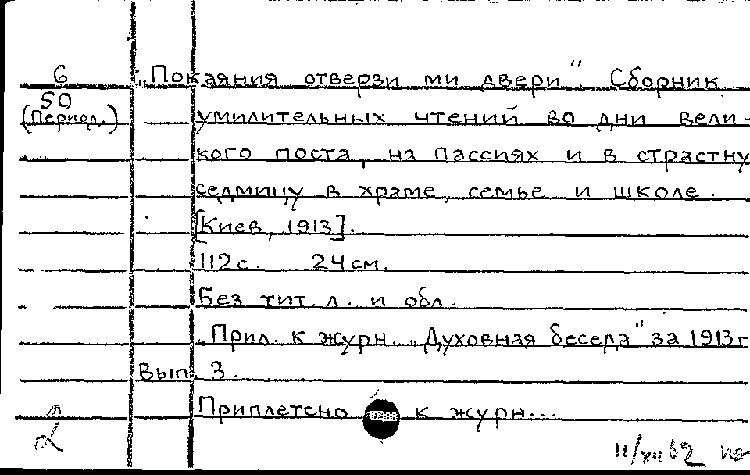 6 „Покаяния отверзи ми двери". Сборник
50
(Период.) умилительных чтений во дни вели-
кого поста, на пассиях и в страстну
седмицу в храме, семье и школе.
[Киев, 1913].
112с. 24см.
Без тит. л. и обл.
„Прил. к журн. „Духовная беседа" за 1913г
Вып. 3.
Приплетено к журн...